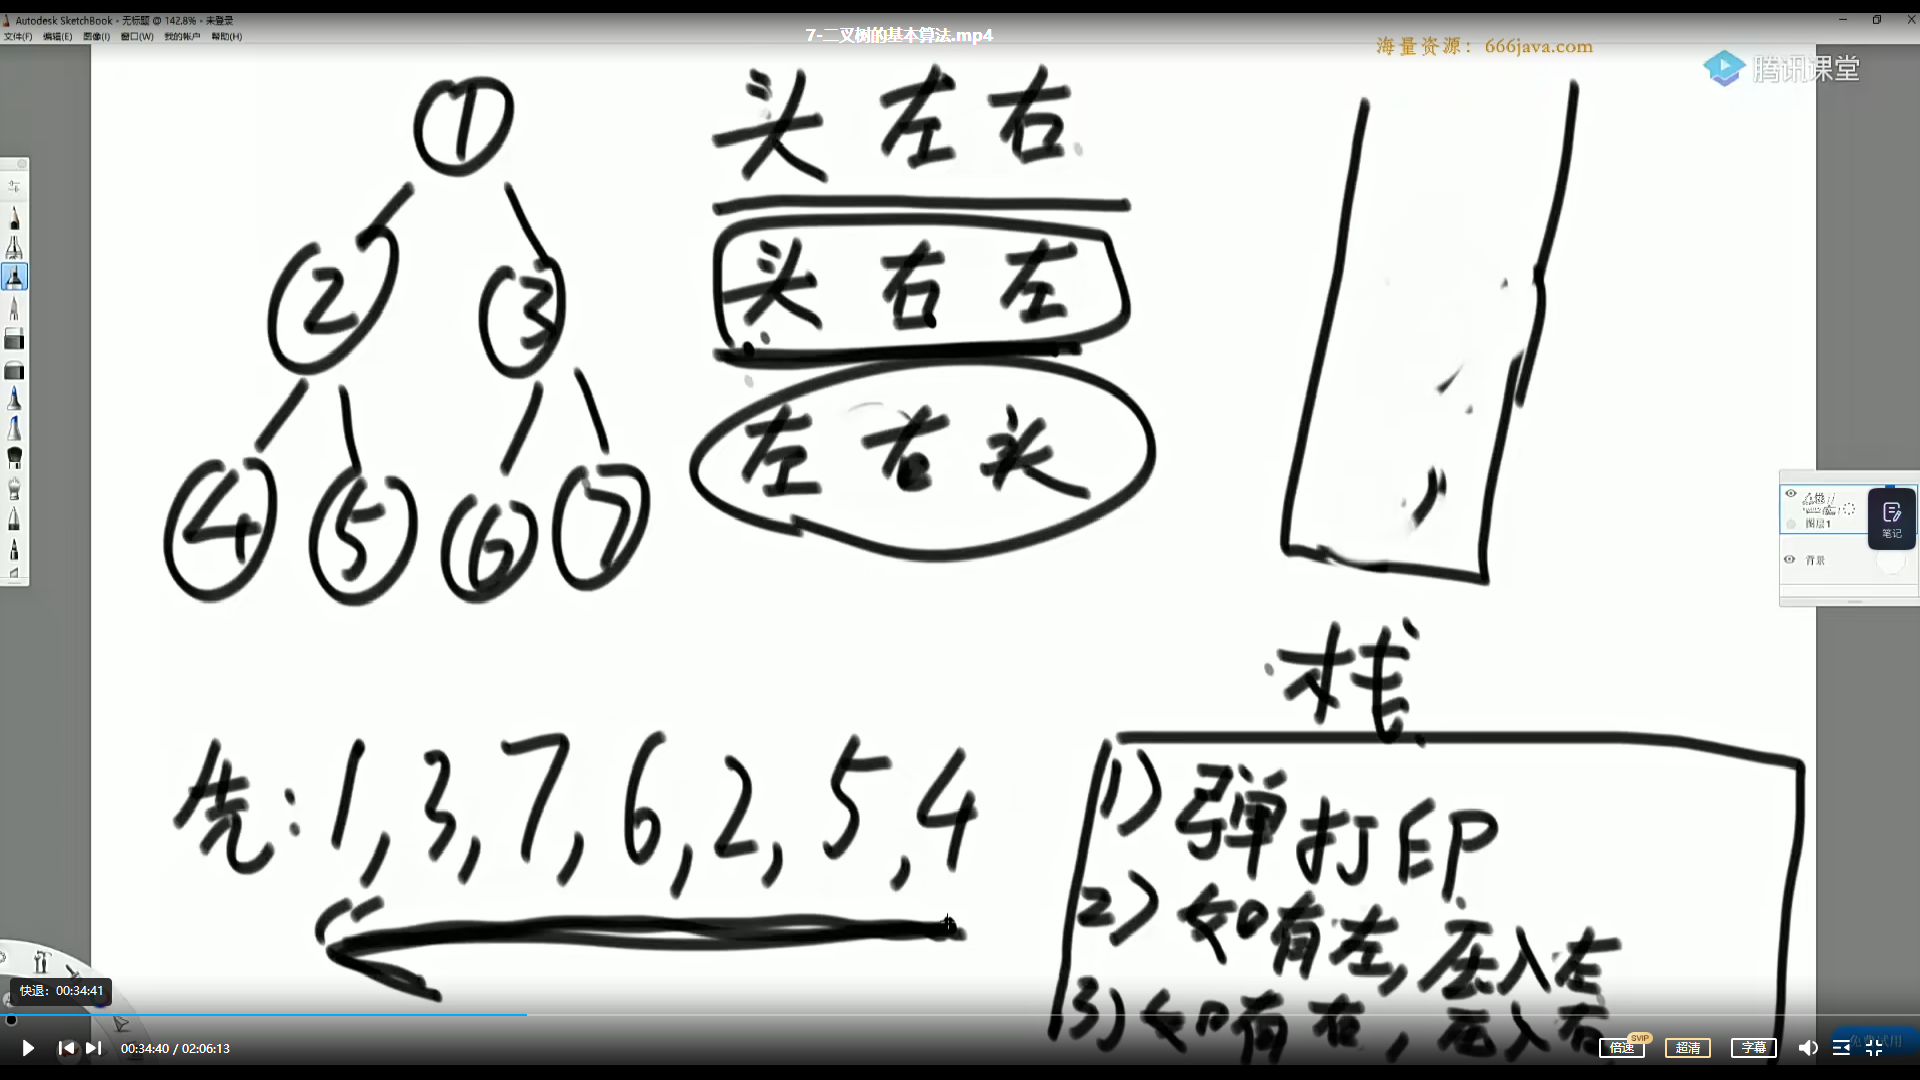 Autodesk SketchBook - 无标题 @ 142.8% - 未登录
文件(F) 编辑(E) 图像(I) 窗口(W) 我的帐户 帮助(H)
7-二叉树的基本算法.mp4
海量资源：666java.com
腾讯课堂
1
2 3
4 5 6 7
头 左 右
头 右 左
左 右 头
栈
图层1
笔记
背景
先: 1, 3, 7, 6, 2, 5, 4
1) 弹打印
2) 如有左, 压入左
3) 如有右, 压入右
快退：00:34:41
00:34:40 / 02:06:13
倍速 SVIP 超清 字幕